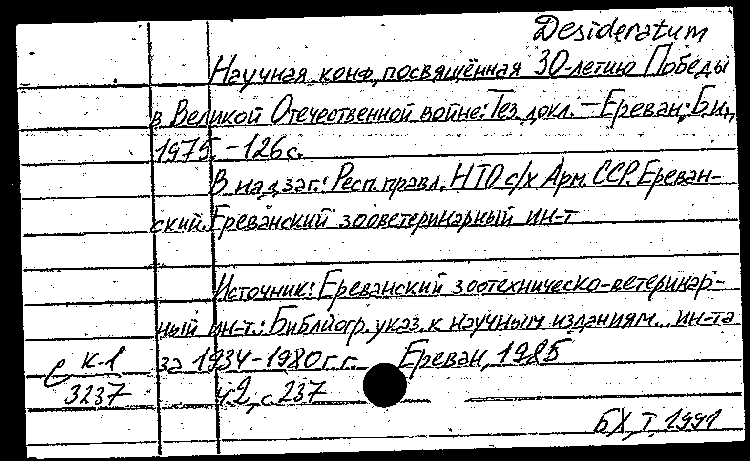 Desideratum
Научная конф., посвящённая 30-летию Победы
в Великой Отечественной войне: Тез. докл. – Ереван: Б.и.,
1975. – 126 с.
В надзаг.: Респ. правл. НТО с/х Арм. ССР. Ереван-
ский. Ереванский зооветеринарный ин-т
Источник: Ереванский зоотехническо-ветеринар-
ный ин-т.: Библиогр. указ. к научным изданиям... ин-та
за 1934-1980 г.г. Ереван, 1985
е К-1
3237
ч 2, с. 237
БХ, Т, 1991